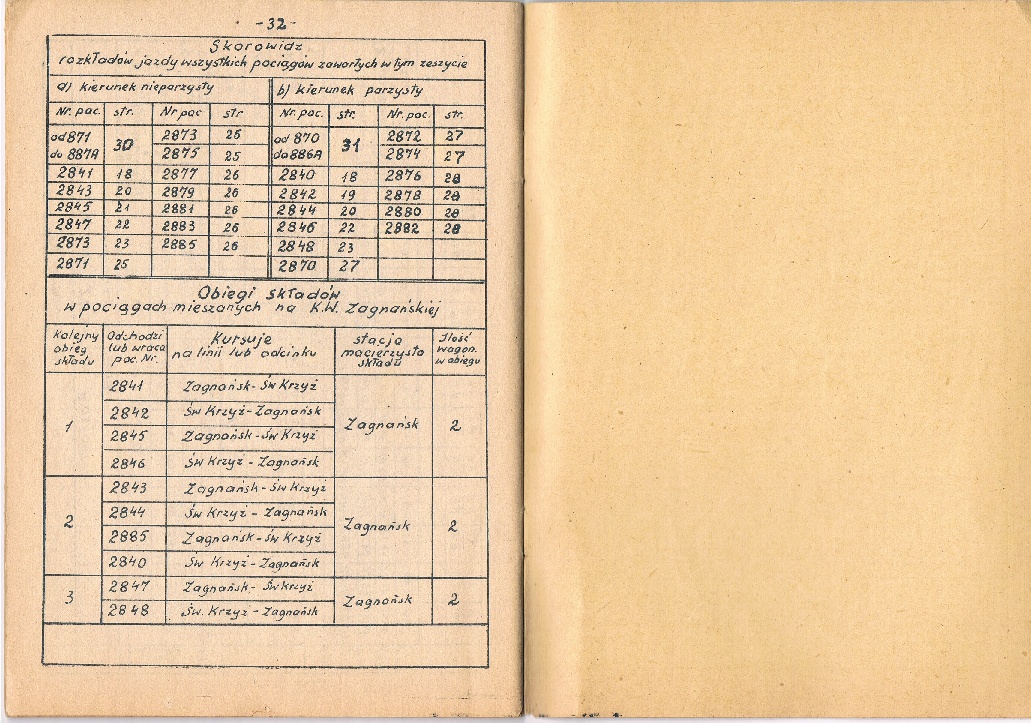 - 32 -
Skorowidz
rozkładów jazdy wszystkich pociągów zawartych w tym zeszycie
a) kierunek nieparzysty b) kierunek parzysty
Nr. poc. str. Nr poc str Nr. poc. str. Nr. poc. str.
od 871 30 2873 25 od 870 31 2872 27
do 887A 2875 25 do 886A 2874 27
2841 18 2877 26 2840 18 2876 28
2843 20 2879 26 2842 19 2878 28
2845 21 2881 26 2844 20 2880 28
2847 22 2883 26 2846 22 2882 28
2873 23 2885 26 2848 23
2871 25 2870 27
Obiegi składów
w pociągach mieszanych na K.W. Zagnańskiej
Kolejny Odchodzi Kursuje stacja Ilość
obieg lub wraca na linii lub odcinku macierzysta wagon.
składu poc. Nr. składu w obiegu
2841 Zagnańsk - Św Krzyż
2842 Św Krzyż - Zagnańsk
1 Zagnańsk 2
2845 Zagnańsk - Św Krzyż
2846 Św Krzyż - Zagnańsk
2843 Zagnańsk - Św Krzyż
2844 Św Krzyż - Zagnańsk
2 Zagnańsk 2
2885 Zagnańsk - Św Krzyż
2840 Św Krzyż - Zagnańsk
2847 Zagnańsk - Św Krzyż
3 Zagnańsk 2
2848 Św. Krzyż - Zagnańsk